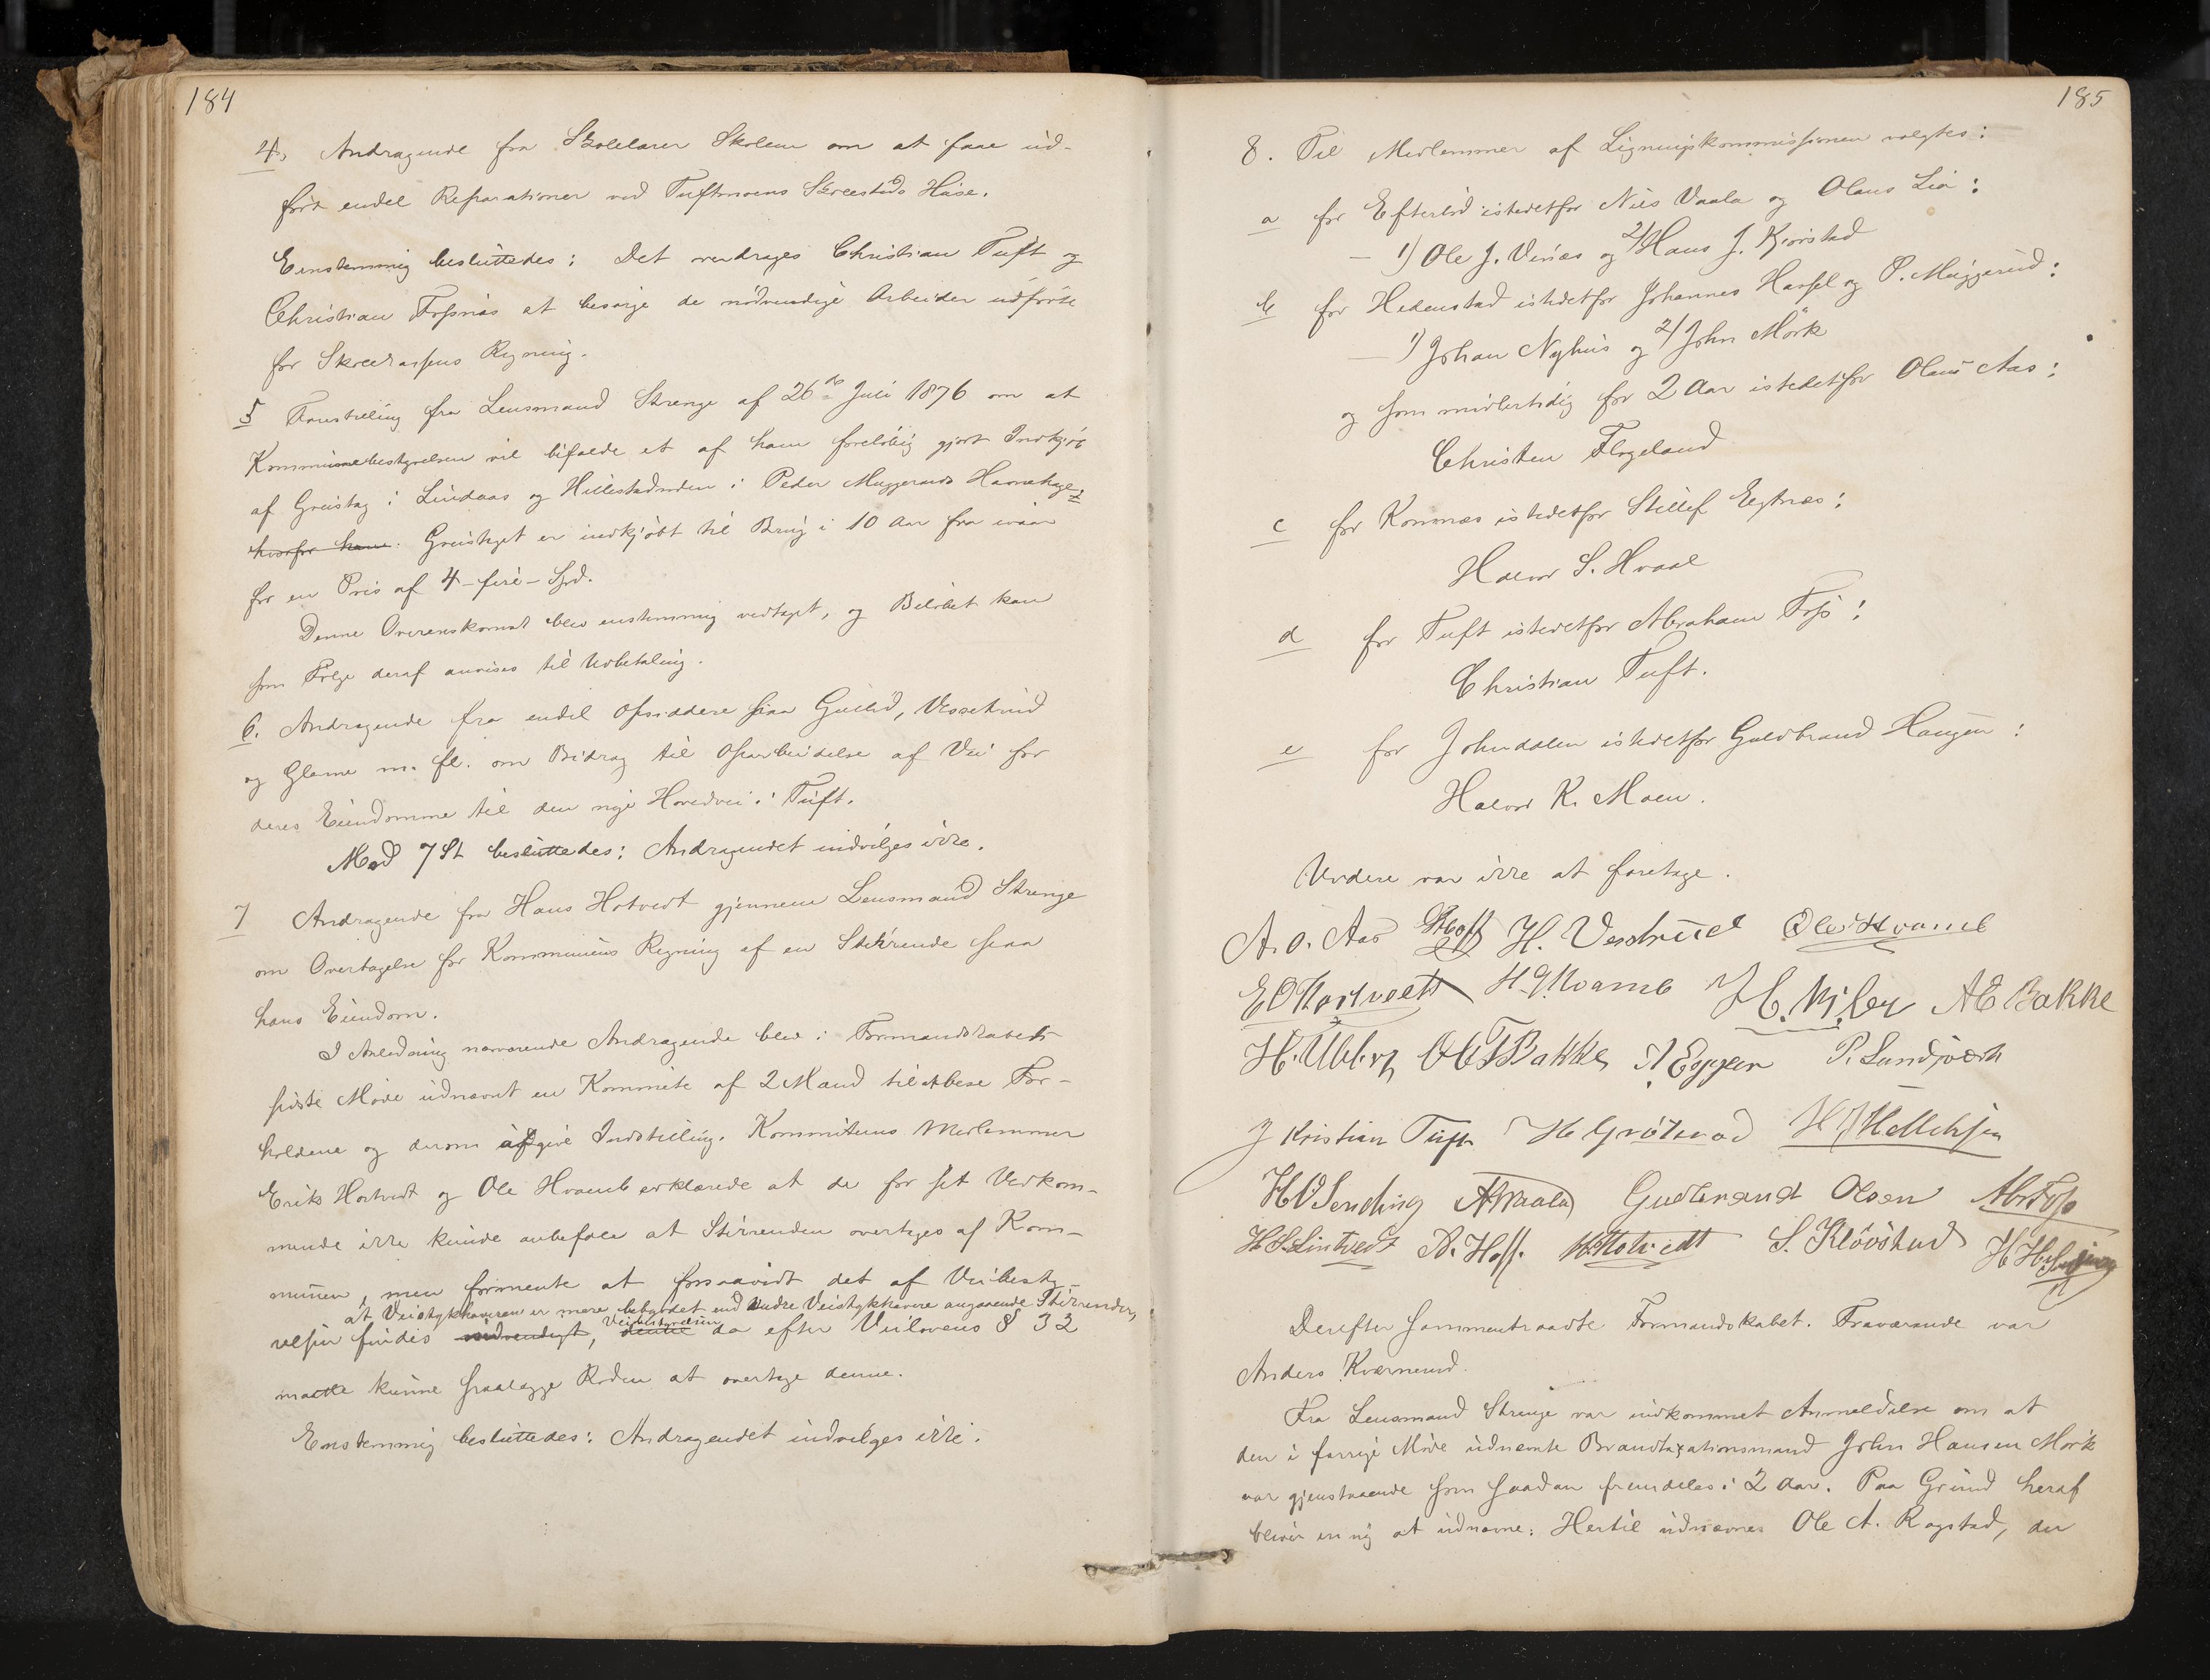 184
4, Andragende fra Skolelærer Skolem om at faae ud-
ført endel Reparationer ved Tuftmoens Skoesteds Huse.
Eenstemmig besluttedes: Det overdrages Christian Tuft og
Christian Fosnæs at besørge de nødvendige Arbeider udførte
for Skolekassens Regning.
5 Forestilling fra Lensmand Strenge af 26de Juli 1876 om at
Kommunebestyrelsen vil bifalde et af ham foreløbig gjort Indkjøb
af Grustag i Lindaas og Hillestadroden i Peder Muggeruds Havnehage,
hvorfor han. Grustaget er indkjøbt til Brug i 10 Aar fra iaar
for en Pris af 4 - fire - Spd.
Denne Overenskomst blev enstemmig vedtaget, og Beløbet kan
som Følge deraf anvises til Udbetaling.
6. Andragende fra endel Opsiddere paa Gulid,
og Glame m. fl. om Bidrag til Oparbeidelse af Vei for
deres Eiendomme til den nye Hovedvei i Tuft.
Med 7 St besluttedes: Andragendet indvilges ikke.
7 Andragende fra Hans Hotvedt gjennem Lensmand Strenge
om Overtagelse for Kommunens Regning af en Stikrende paa
hans Eiendom.
I Anledning nærværende Andragende blev i Formandskabets
sidste Møde udnævnt en Kommite af 2 Mænd til at bese For-
holdene og derom afgive Indstilling. Kommiteens Medlemmer
Erik Hortvedt og Ole Hvamb erklærede at de for sit Vedkom-
mende ikke kunde anbefale at Stikrenden overtages af Kom-
munen, men formente at forsaavidt det af Veibesty-
at Veistykkhaveren er mere bebyrdet end andre Veistykkhavere angaaende Stikrender,
relsen findes nødvendigt, denne Veibestyrelsen da efter Veilovens § 32
maatte kunne paalægge Roden at overtage denne.
Enstemmig besluttedes: Andragendet indvilges ikke.
185
8. Til Medlemmer af Ligningskommissionen valgtes:
a for Efteløb istedetfor Niels Vaala og Olaus Lia:
— 1) Ole J. Vinæs og 2/ Hans J. Kjørstad
b for Hedenstad istedetfor Johannes Hassel og P. Muggerud:
— 1) Johan Nyhus og 2/ John Mørk
og som midlertidig for 2 Aar istedetfor Olaus Aas:
Christen Flogeland
c for Komnæs istedetfor Stillef Eegtnæs:
Halvor S. Hvaal
d for Tuft istedetfor Abraham Fos:
Christian Tuft.
e for Johndalen istedetfor Guldbrand Haugen:
Halvor K. Moen.
Videre var ikke at foretage.
A. O. Aas Hoff H. Vestrud Ole Hvamb
E O Hortvedt H J Hvamb H. A E Bakke
H. Ulberg O E Bakke A Eggen P. Lundjordet
J Kristian Tuft H Grøterød H J Hellebsen
H O Sending A Waala Gudbrand Olsen Abr Fos
H. S. Lintvedt N. Hoff. H Hotvedt S. Kløvstad H H
Derefter sammentraadte Formandskabet. Fraværende var
Anders Kværnerud.
Fra Lensmand Strenge var indkommet Anmeldelse om at
den i forrige Møde udnævnte Brandtaxationsmand John Hansen Mørk
var gjenstaaende som saadan fremdeles i 2 Aar. Paa Grund heraf
bliver en ny at udnævne: Hertil udnævnes Ole A. Ragstad, der